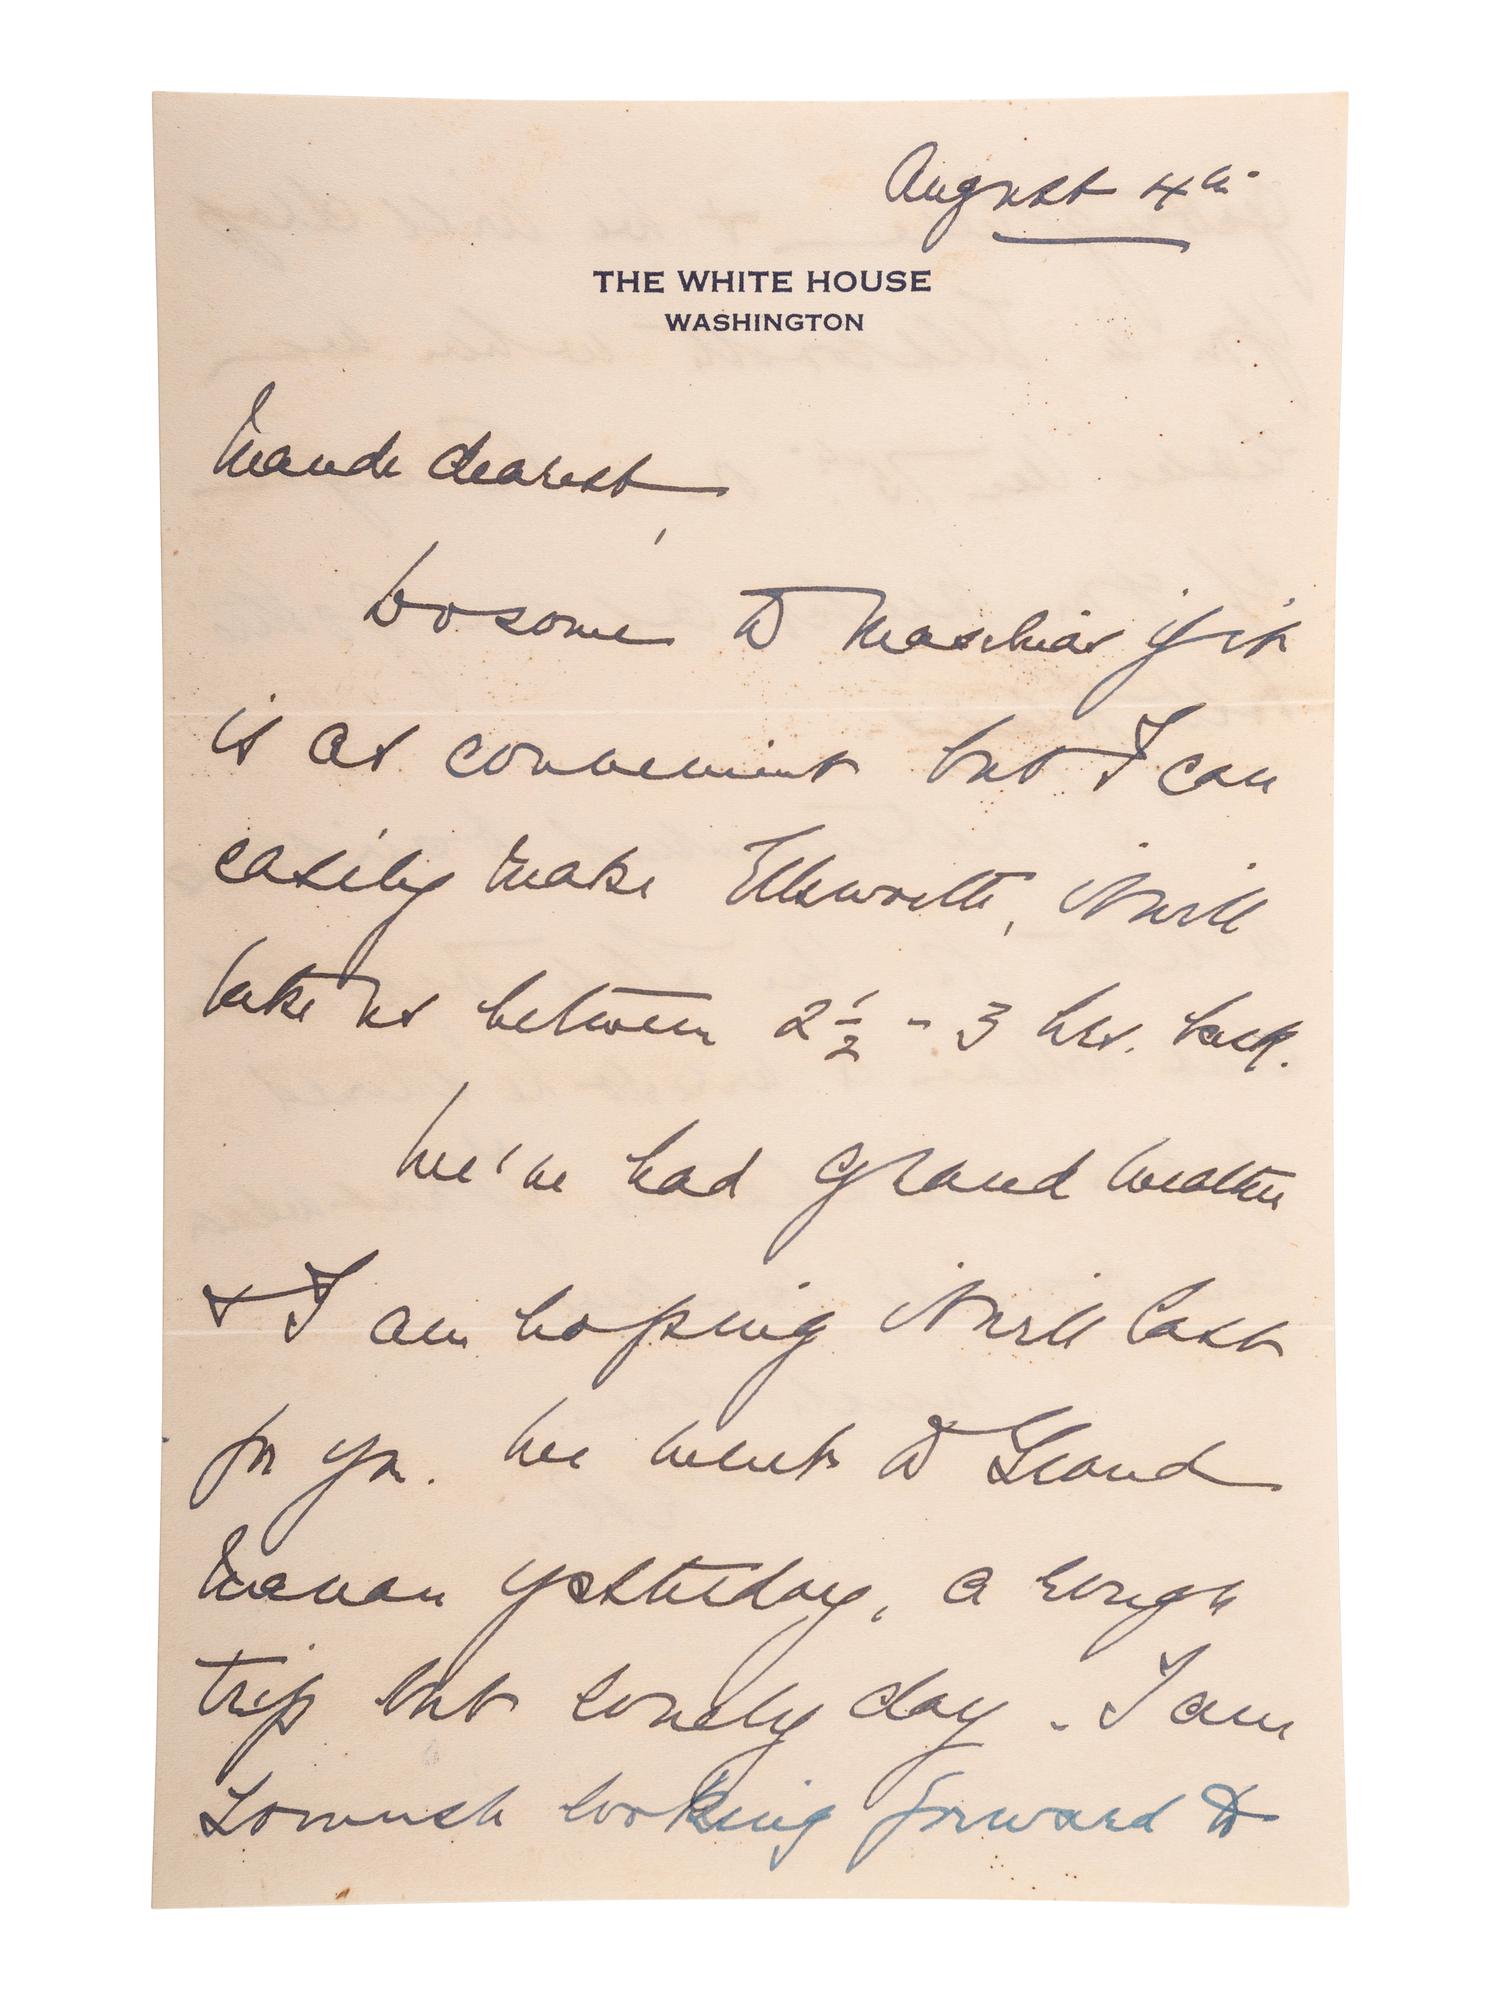 August 4th
THE WHITE HOUSE
WASHINGTON
Maude dearest,
Do some to Machias if it
is as convenient but I can
easily make Ellsworth, it will
take us between 2½ - 3 hrs. back.
We've had grand weather
& I am hoping it will last
for you. We went to Grand
Manan yesterday, a rough
trip but lovely day. I am
so much looking forward to